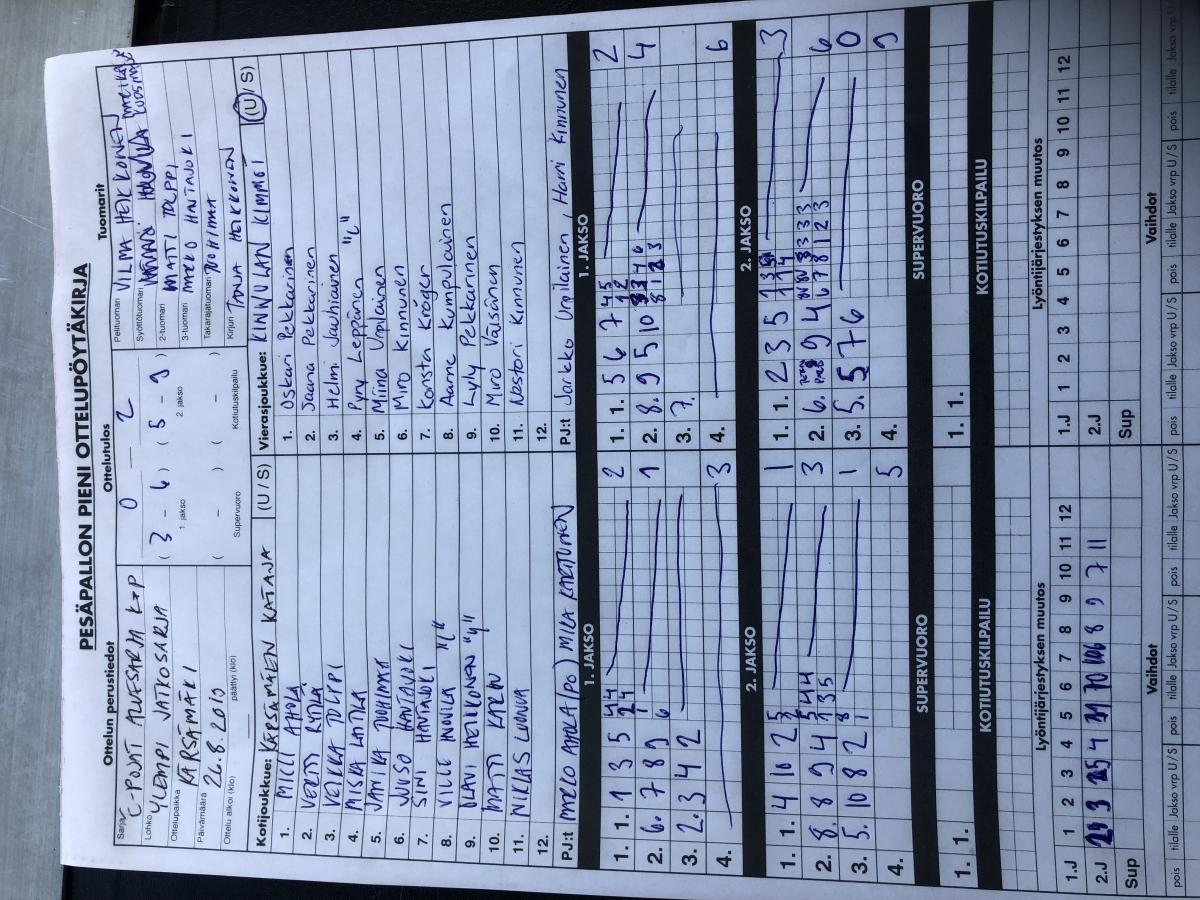 PESÄPALLON PIENI OTTELUPÖYTÄKIRJA
Ottelun perustiedot
Sarja C-POJAT ALUESARJA K+P
Lohko YLEMPI JATKOSARJA
Ottelupaikka KÄRSÄMÄKI
Päivämäärä 26.8.2019
Ottelu alkoi (klo) päättyi (klo)
Ottelutulos
0 – 2
( 3 - 6 ) ( 5 - 9 )
1. jakso 2. jakso
( - ) ( - )
Supervuoro Kotiutuskilpailu
Tuomarit
Pelituomari VILMA HEIKKONEN
Syöttötuomari
2-tuomari MATTI TOLPPI
3-tuomari MIKO HAITAJOKI
Takarajatuomari
Kirjuri TANJA HEIKKONEN
Kotijoukkue: KÄRSÄMÄEN KATAJA (U / S)
1. MICCI AHOLA
2. VERTTI RYTKÄ
3. VEIKKA TOLPPI
4. MISKA LATIKA
5. JANIKA TUOHIMAA
6. JUUSO HAITAJOKI
7. SINI HAITAJOKI
8. VILLE NOVILA "L"
9. OLAVI HEIKKONEN "4"
10. MATTI KARJU
11. NIKLAS LUONUA
12.
PJ:t MIKKO AHOLA (PO) MIKA KARTTUNEN
Vierasjoukkue: KINNULAN KIMMOT (U / S)
1. Oskari Pekkarinen
2. Jaana Pekkarinen
3. Helmi Jauhiainen
4. Pyry Leppänen "L"
5. Miina Urpilainen
6. Miro Kinnunen
7. Konsta Kröger
8. Aarne Kumpulainen
9. Lyly Pekkarinen
10. Miro Väisänen
11. Nestori Kinnunen
12.
PJ:t Jarkko Urpilainen, Harri Kinnunen
1. JAKSO
1. 1. 1 3 5 2
2. 6. 7 8 9 1
3. 2. 3 4 2
4. 3
1. JAKSO
1. 1. 5 6 7 2
2. 8. 9 5 10 4
3. 7.
4. 6
2. JAKSO
1. 1. 4 10 2 1
2. 8. 8 9 4 3
3. 5. 10 8 2 1
4. 5
2. JAKSO
1. 1. 2 3 5 3
2. 6. 9 4 6
3. 5. 5 7 6 0
4. 9
SUPERVUORO
1. 1.
SUPERVUORO
1. 1.
KOTIUTUSKILPAILU
KOTIUTUSKILPAILU
Lyöntijärjestyksen muutos
1.J 1 2 3 4 5 6 7 8 9 10 11 12
2.J
Sup
Lyöntijärjestyksen muutos
1.J 1 2 3 4 5 6 7 8 9 10 11 12
2.J
Sup
Vaihdot
pois tilalle Jakso vrp U / S pois tilalle Jakso vrp U / S
Vaihdot
pois tilalle Jakso vrp U / S pois tilalle Jakso vrp U / S